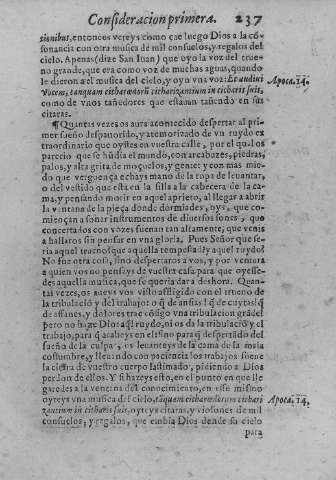 Consideracion primera. 237
tionibus, entonces vereys como çae luego Dios a la cõ-
sonancia con otra musica de mil consuelos, y regalos del
cielo. Apenas (dize San Iuan) que oyo la voz del true-
no grande, que era como voz de muchas aguas, quando
le dieron al musica del cielo, y oyo vna voz: Et audiui
Apoca. 14.
vocem, tanquam citharœdorũ citharizantium in citharis suis,
como de vnos tañedores que estauan tañendo en sus
citaras.
¶ Quantas vezes os aura acontecido despertar al pri-
mer sueño despauorido, y atemorizado de vn ruydo ex
traordinario que oystes en vuestra calle, por el qual os
parecio que se hũdia el mundo, con arcabuzes, piedras,
palos, y alta grita de moçuelos, y gente: y con mas mie-
do que verguença echays mano de la ropa de leuantar,
o del vestido que esta en la silla a la cabecera de la ca-
ma, y pensando morir en aquel aprieto, al llegar a abrir
la ventana de la pieça donde dormiades, oys, que co-
miençan a sonar instrumentos de diuersos sones, que
concertados con vozes suenan tan altamente, que venis
a hallaros sin pensar en vna gloria. Pues Señor que se-
ria aquel trueno? que aquella tempestad? y aquel ruydo?
No fue otra cosa, sino despertaros a vos, y por ventura
a quien vos no pensays de vuestra casa para que oyesse-
des aquella musica, que se queria dar a deshora. Quan-
tas vezes, os aueys vos visto afligido con el trueno de
la tribulació y del trabajo: o q̃ de ansias! q̃ de cuytas! q̃
de affanes, y dolores trae cõsigo vna tribulacion grãde!
pero no haze Dios aql ruydo, ni os da la tribulació y el
trabajo, para q̃ acabeys en el: sino para q̃ despertãdo del
sueño de la culpa, os leuanteys de la cama de la mala
costumbre, y lleuando con paciencia los trabajos
la vuestro cuerpo lastimado, pidiendo a Dios
perdon de ellos. Y si hazeys esto, en el punto en que lle
garedes a la ventana del conocimiento, en esse mismo
oyreys vna musica del cielo, tãquam citharœdorum cithari
Apoca. 14.
zantium in citharis suis, oyreys citaras, y violones de mil
consuelos, y regalos, que embia Dios dende su cielo
para